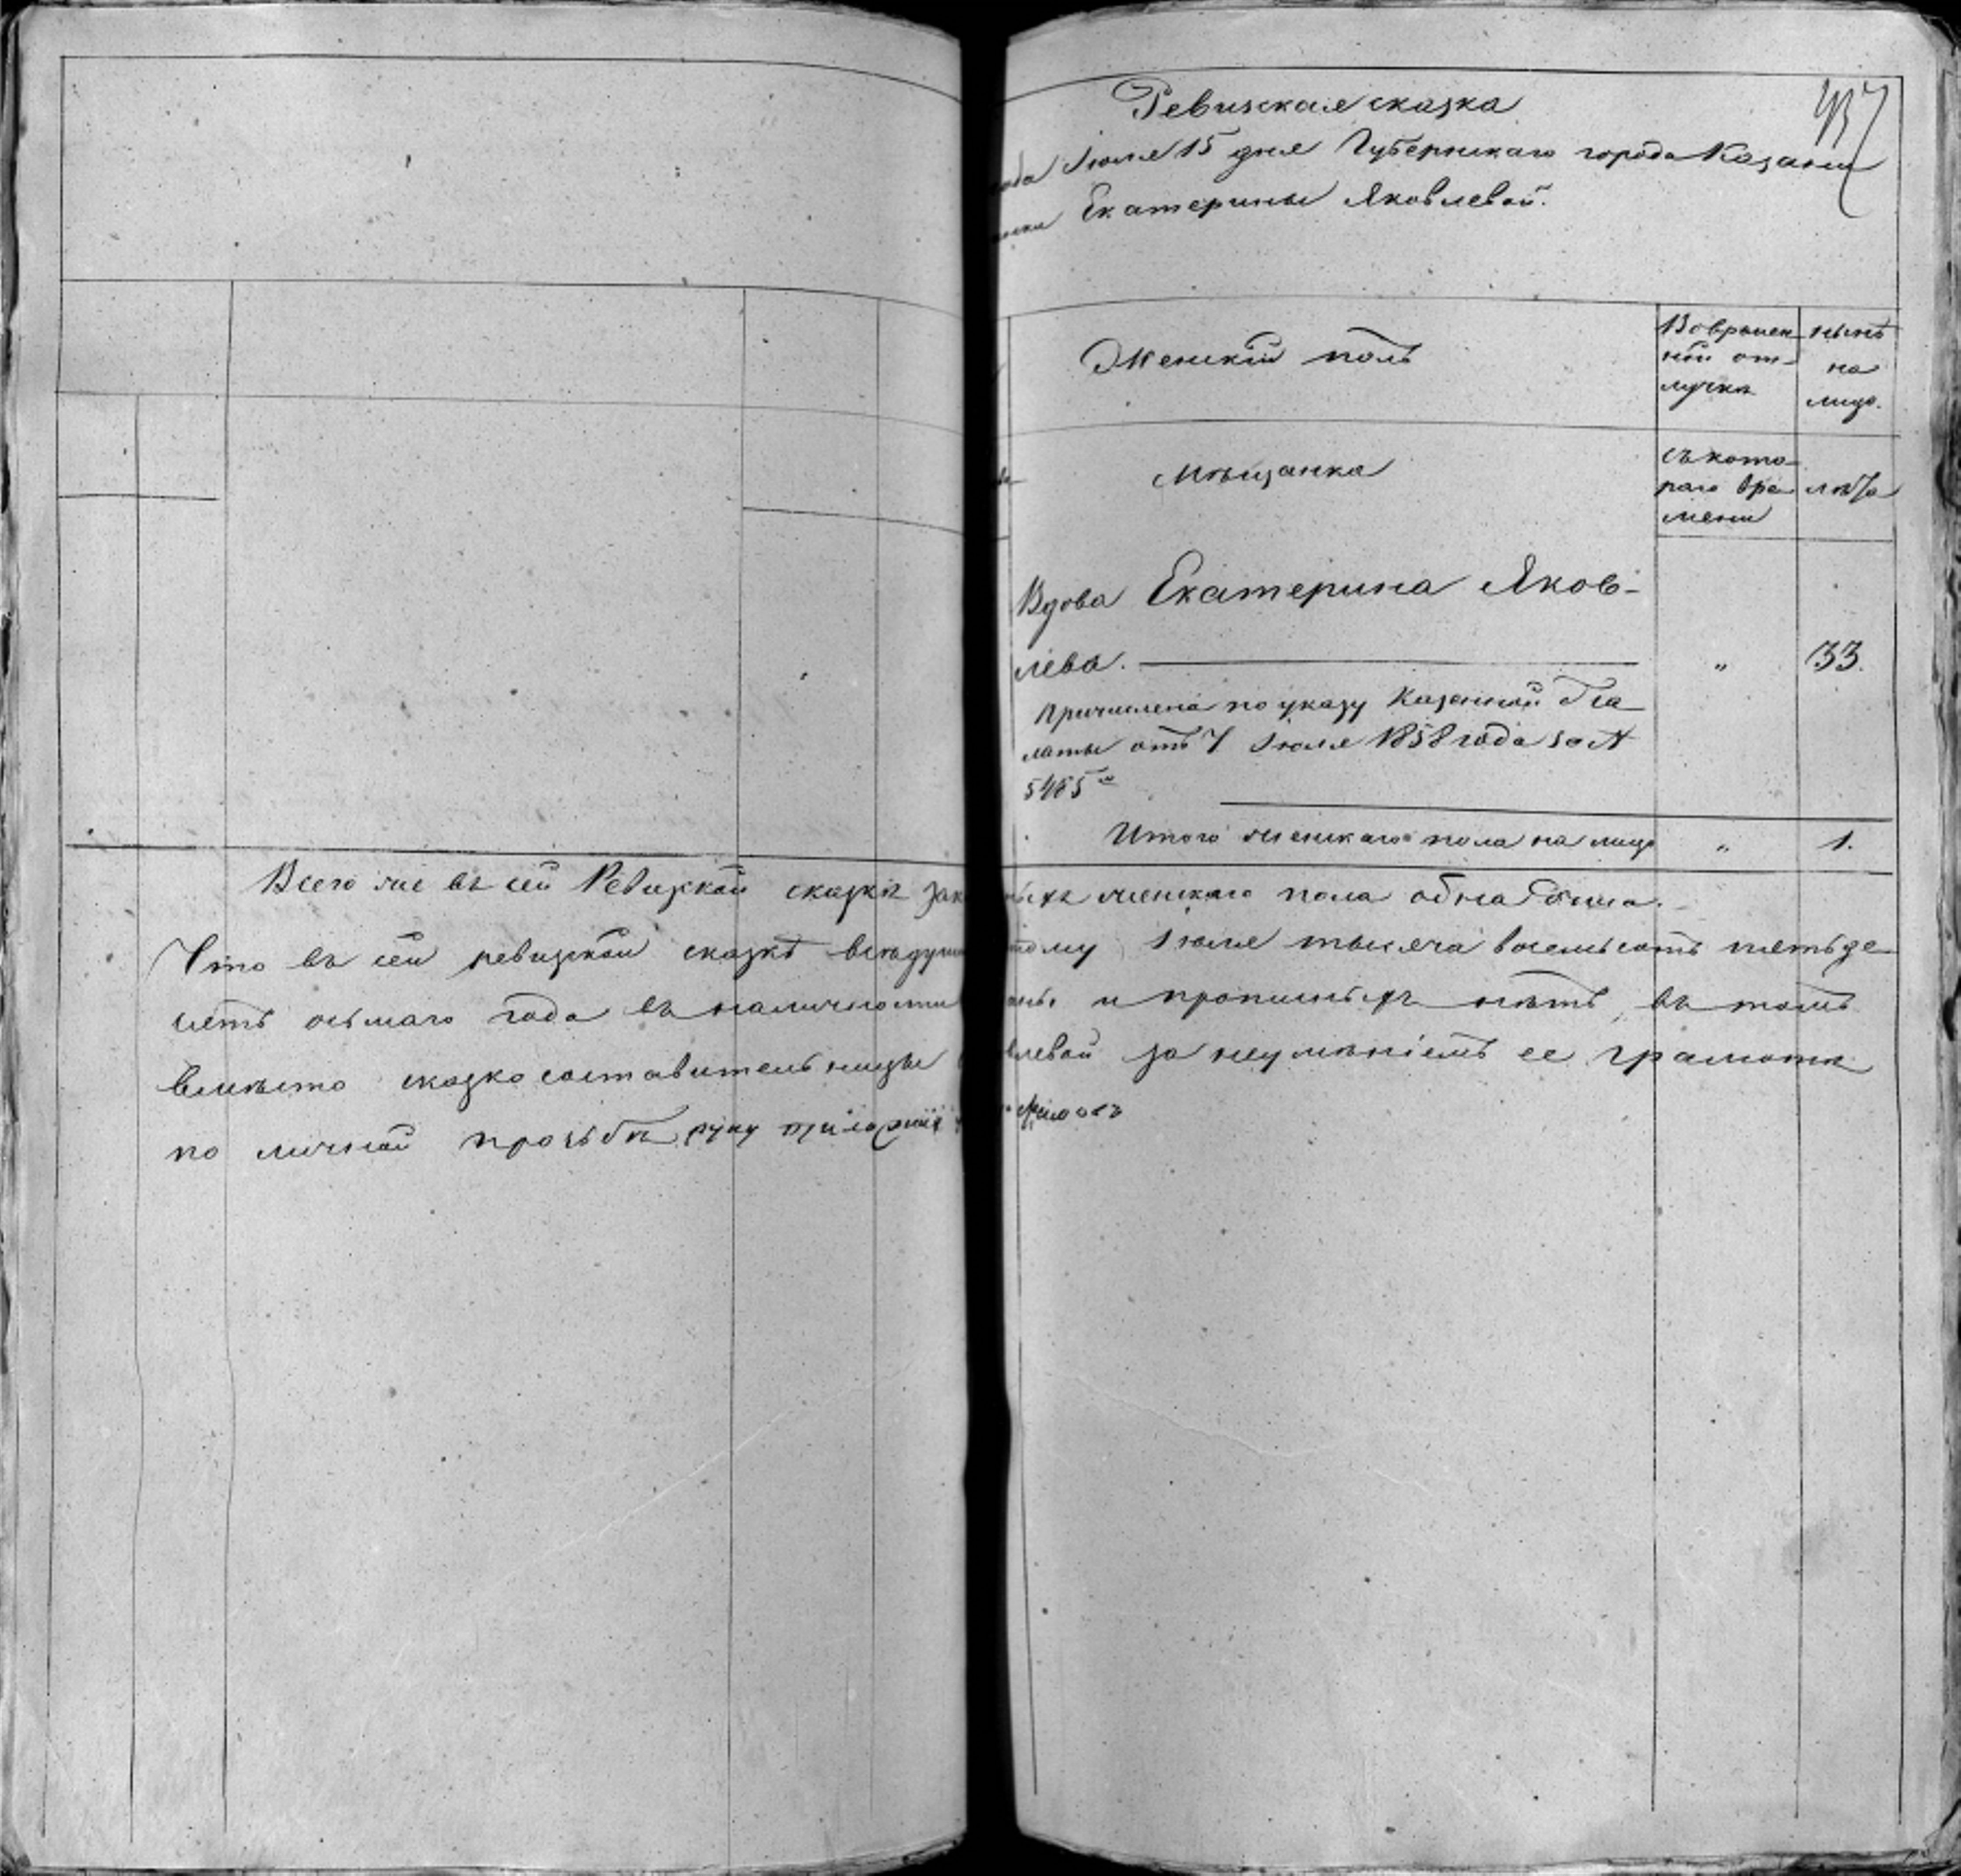 Ревизская сказка
Іюля 15 дня Губернскаго города Казани
Екатерины Яковлевой.
Женскій полъ
Вовремен
ной от-
лучкѣ
нынѣ
на
лицо.
Мѣщанка
съ кото-
раго вре-
мени
лѣта
Вдова Екатерина Яков-
лева. „ 33.
причислена по указу Казенной Па-
латы отъ 7 Іюля 1858 года за №
Итого женскаго пола на лицо „ 1.
Всего же въ сей Ревизской сказкѣ женскаго пола одна душа.
Что въ сей ревизской сказкѣ Іюля тысяча восемьсотъ пятьде-
сятъ осьмаго года въ наличности и прописныхъ нѣтъ, въ томъ
вмѣсто сказкосоставительницы за неумѣніемъ ее грамотѣ
по личной прозьбѣ руку